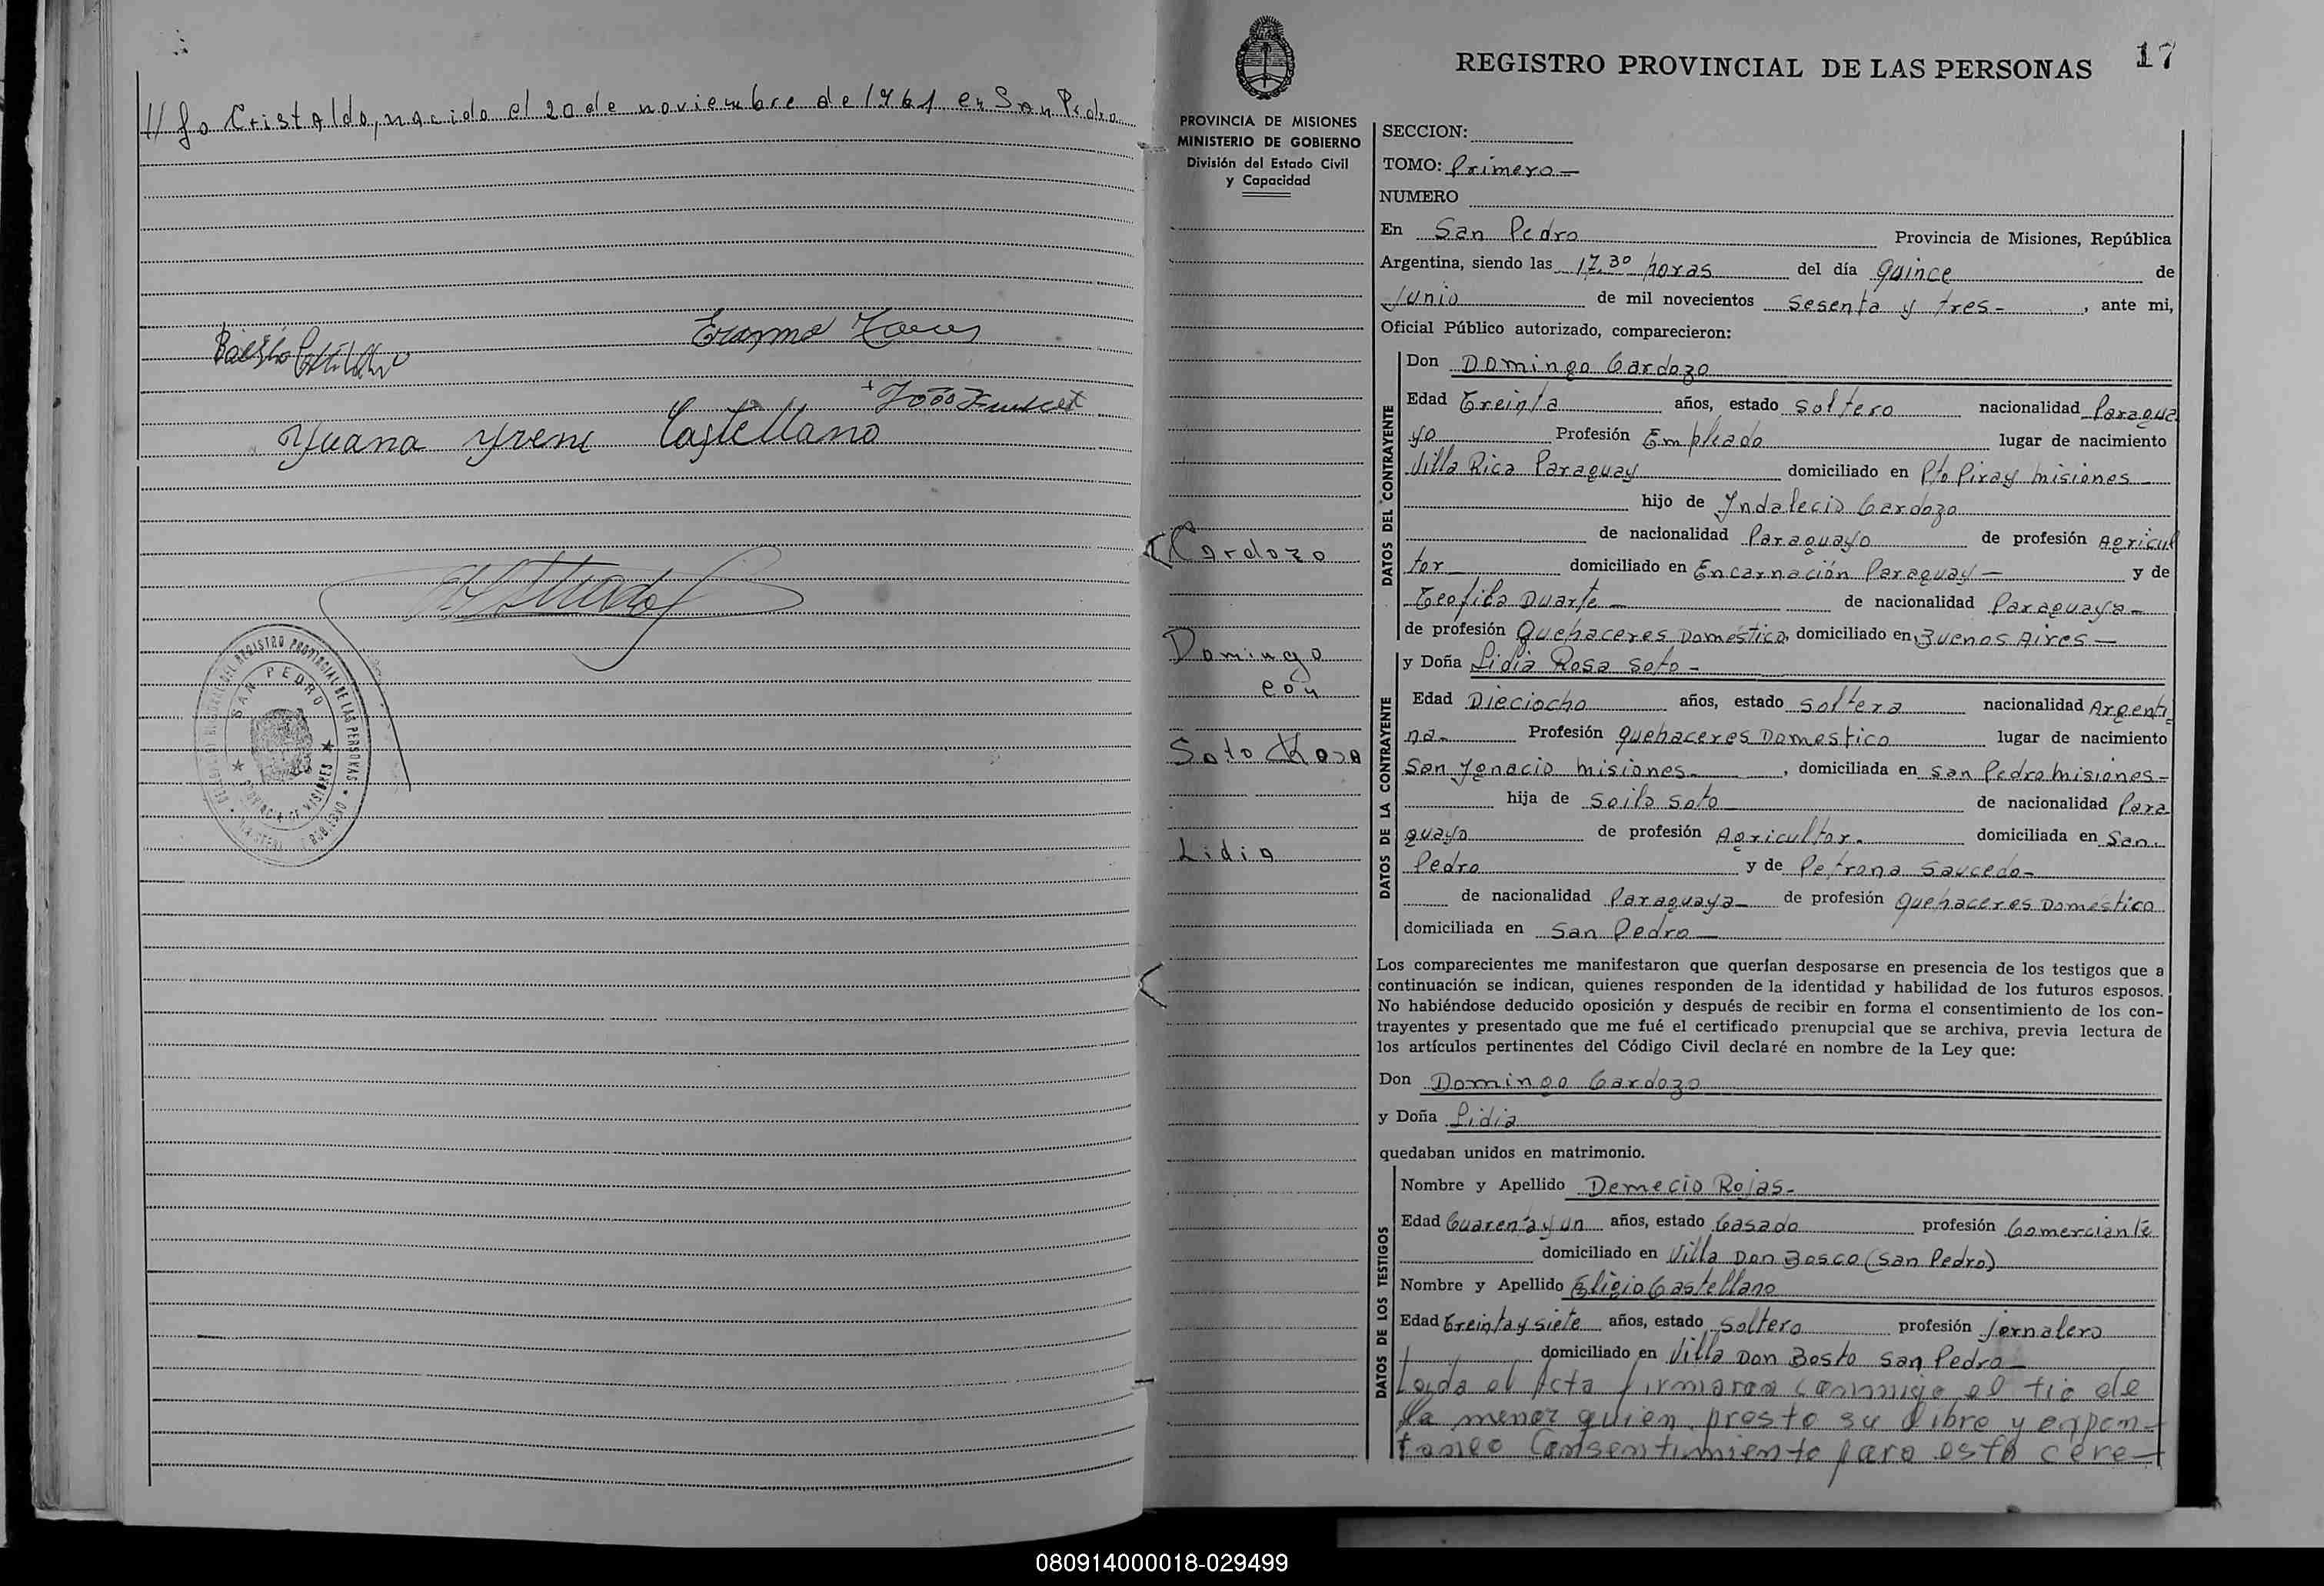 // go Cristaldo, nacido el 20 de noviembre de 1961 en San Pedro
Erasmo
Juana Yrene Castellano
SAN PEDRO
17
REGISTRO PROVINCIAL DE LAS PERSONAS
PROVINCIA DE MISIONES
MINISTERIO DE GOBIERNO
División del Estado Civil
y Capacidad
Cardozo
Domingo
con
Soto Rosa
Lidia
SECCION:
TOMO: Primero -
NUMERO
En San Pedro Provincia de Misiones, República
Argentina, siendo las 17.30 horas del día quince de
Junio de mil novecientos Sesenta y tres - , ante mi,
Oficial Público autorizado, comparecieron:
DATOS DEL CONTRAYENTE
Don Domingo Cardozo
Edad Treinta años, estado Soltero nacionalidad Paragua
yo Profesión Empleado lugar de nacimiento
Villa Rica Paraguay domiciliado en Pto Piray Misiones -
hijo de Yndalecio Cardozo
de nacionalidad Paraguayo de profesión Agricul
tor domiciliado en Encarnación Paraguay - y de
Teofila Duarte - de nacionalidad Paraguaya -
de profesión Quehaceres Doméstico, domiciliado en Buenos Aires -
DATOS DE LA CONTRAYENTE
y Doña Lidia Rosa Soto -
Edad Dieciocho años, estado Soltera nacionalidad Argenti
na - Profesión quehaceres Domestico lugar de nacimiento
San Ygnacio Misiones - , domiciliada en San Pedro Misiones -
hija de Soilo Soto de nacionalidad Para
guayo de profesión Agricultor. domiciliada en San
Pedro y de Petrona Saucedo -
de nacionalidad Paraguaya - de profesión quehaceres Domestico
domiciliada en San Pedro -
Los comparecientes me manifestaron que querían desposarse en presencia de los testigos que a
continuación se indican, quienes responden de la identidad y habilidad de los futuros esposos.
No habiéndose deducido oposición y después de recibir en forma el consentimiento de los con-
trayentes y presentado que me fué el certificado prenupcial que se archiva, previa lectura de
los artículos pertinentes del Código Civil declaré en nombre de la Ley que:
Don Domingo Cardozo
y Doña Lidia
quedaban unidos en matrimonio.
DATOS DE LOS TESTIGOS
Nombre y Apellido Demecio Rojas -
Edad Cuarenta y un años, estado Casado profesión Comerciante
domiciliado en Villa Don Bosco (San Pedro)
Nombre y Apellido Eligio Castellano
Edad Treinta y siete años, estado Soltero profesión Jornalero
domiciliado en Villa Don Bosto San Pedro -
Leyda el Acta firmaron conmigo el tio de
la menor quien presto su libre y expon-
taneo Consentimiento para esta cere-
080914000018-029499